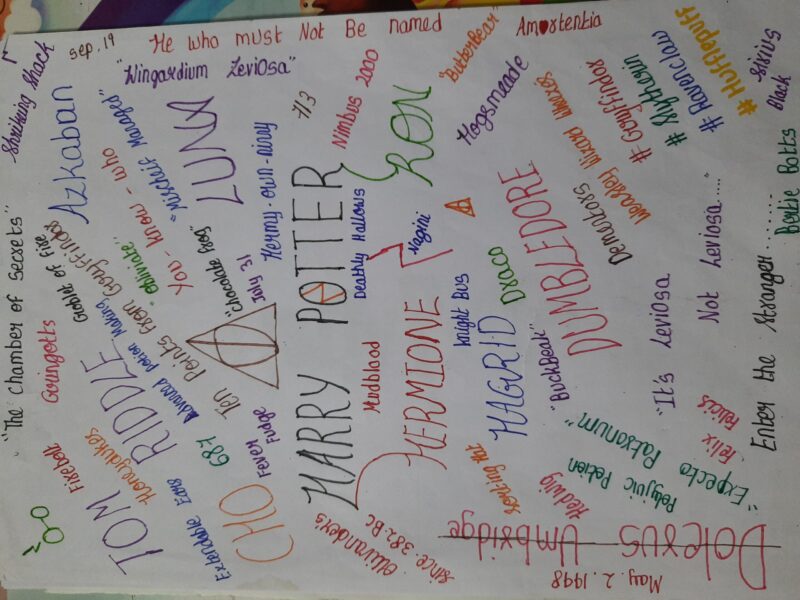 He who must Not Be named
sep.19
"Wingardium Leviosa"
Amortentia
"Butterbear"
Shriking Shack
Azkaban
"Mischeif Managed"
LUNA
7/3
Nimbus 2000
RON
Hogsmeade
Weasley Wizard
# Gryffindor
# Slytherin
# Ravenclaw
# Hufflepuff
Sirius Black
Bertie Botts
"The chamber of Secrets"
Goblet of Fire
You-know-who
"obliviate"
Hermy-own-ninny
"Chocolate frog"
July 31
Ten Points From Gryffindor
Gringotts
Advanced potion Making
TOM RIDDLE
HARRY POTTER
Deathly Hallows
Nagini
Mudblood
HERMIONE
Knight Bus
Draco
HAGRID
"BuckBeak"
DUMBLEDORE
Dementors
"It's Leviosa
Not Leviosa...."
Enter the Stranger........
Firebolt
Honeydukes
Extendable Ears
687
CHO
Fever Fudge
Ollivander's
since 382 BC
Hedwig
Polyjuic Potion
"Expecto Patronum"
Felix Felices
Dolerus Umbridge
May.2.1998